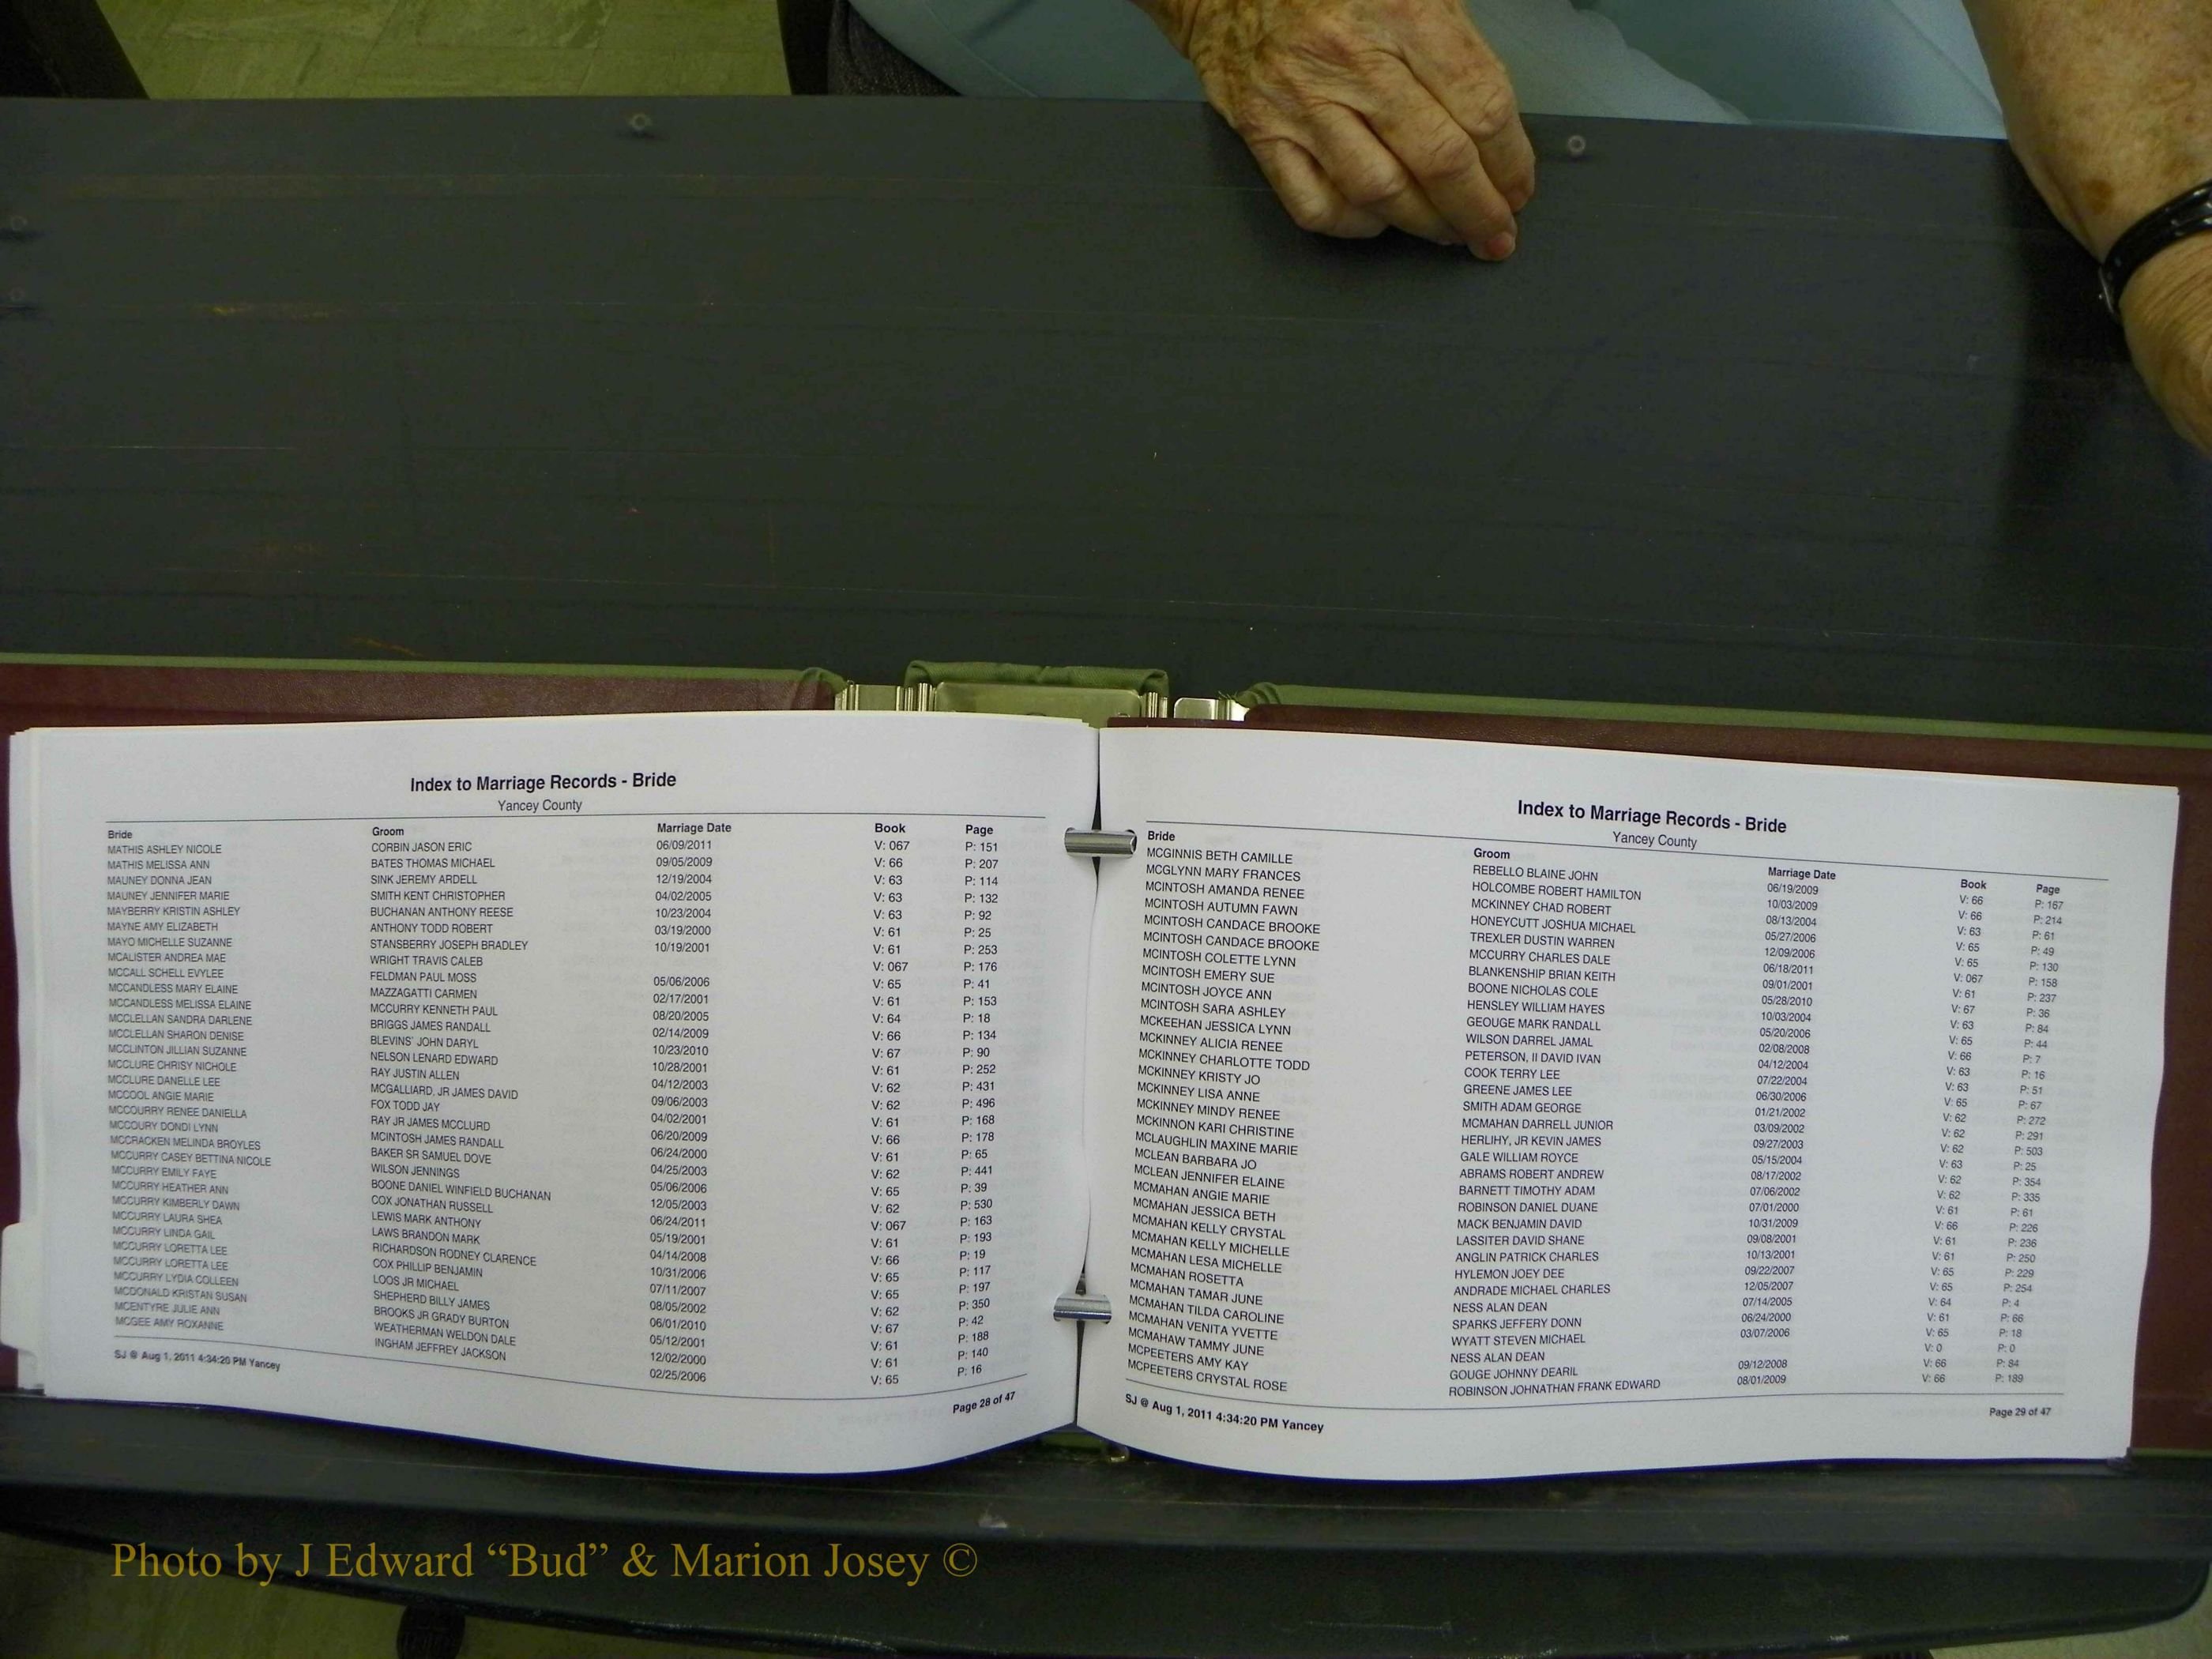 Index to Marriage Records - Bride
Yancey County
Bride Groom Marriage Date Book Page
MATHIS ASHLEY NICOLE CORBIN JASON ERIC 06/09/2011 V: 067 P: 151
MATHIS MELISSA ANN BATES THOMAS MICHAEL 09/05/2009 V: 66 P: 207
MAUNEY DONNA JEAN SINK JEREMY ARDELL 12/19/2004 V: 63 P: 114
MAUNEY JENNIFER MARIE SMITH KENT CHRISTOPHER 04/02/2005 V: 63 P: 132
MAYBERRY KRISTIN ASHLEY BUCHANAN ANTHONY REESE 10/23/2004 V: 63 P: 92
MAYNE AMY ELIZABETH ANTHONY TODD ROBERT 03/19/2000 V: 61 P: 25
MAYO MICHELLE SUZANNE STANSBERRY JOSEPH BRADLEY 10/19/2001 V: 61 P: 253
MCALISTER ANDREA MAE WRIGHT TRAVIS CALEB V: 067 P: 176
MCCALL SCHELL EVYLEE FELDMAN PAUL MOSS 05/06/2006 V: 65 P: 41
MCCANDLESS MARY ELAINE MAZZAGATTI CARMEN 02/17/2001 V: 61 P: 153
MCCANDLESS MELISSA ELAINE MCCURRY KENNETH PAUL 08/20/2005 V: 64 P: 18
MCCLELLAN SANDRA DARLENE BRIGGS JAMES RANDALL 02/14/2009 V: 66 P: 134
MCCLELLAN SHARON DENISE BLEVINS' JOHN DARYL 10/23/2010 V: 67 P: 90
MCCLINTON JILLIAN SUZANNE NELSON LENARD EDWARD 10/28/2001 V: 61 P: 252
MCCLURE CHRISY NICHOLE RAY JUSTIN ALLEN 04/12/2003 V: 62 P: 431
MCCLURE DANELLE LEE MCGALLIARD, JR JAMES DAVID 09/06/2003 V: 62 P: 496
MCCOOL ANGIE MARIE FOX TODD JAY 04/02/2001 V: 61 P: 168
MCCOURRY RENEE DANIELLA RAY JR JAMES MCCLURD 06/20/2009 V: 66 P: 178
MCCOURY DONDI LYNN MCINTOSH JAMES RANDALL 06/24/2000 V: 61 P: 65
MCCRACKEN MELINDA BROYLES BAKER SR SAMUEL DOVE 04/25/2003 V: 62 P: 441
MCCURRY CASEY BETTINA NICOLE WILSON JENNINGS 05/06/2006 V: 65 P: 39
MCCURRY EMILY FAYE BOONE DANIEL WINFIELD BUCHANAN 12/05/2003 V: 62 P: 530
MCCURRY HEATHER ANN COX JONATHAN RUSSELL 06/24/2011 V: 067 P: 163
MCCURRY KIMBERLY DAWN LEWIS MARK ANTHONY 05/19/2001 V: 61 P: 193
MCCURRY LAURA SHEA LAWS BRANDON MARK 04/14/2008 V: 66 P: 19
MCCURRY LINDA GAIL RICHARDSON RODNEY CLARENCE 10/31/2006 V: 65 P: 117
MCCURRY LORETTA LEE COX PHILLIP BENJAMIN 07/11/2007 V: 65 P: 197
MCCURRY LORETTA LEE LOOS JR MICHAEL 08/05/2002 V: 62 P: 350
MCCURRY LYDIA COLLEEN SHEPHERD BILLY JAMES 06/01/2010 V: 67 P: 42
MCDONALD KRISTAN SUSAN BROOKS JR GRADY BURTON 05/12/2001 V: 61 P: 188
MCENTYRE JULIE ANN WEATHERMAN WELDON DALE 12/02/2000 V: 61 P: 140
MCGEE AMY ROXANNE INGHAM JEFFREY JACKSON 02/25/2006 V: 65 P: 16
SJ @ Aug 1, 2011 4:34:20 PM Yancey Page 28 of 47
Index to Marriage Records - Bride
Yancey County
Bride Groom Marriage Date Book Page
MCGINNIS BETH CAMILLE REBELLO BLAINE JOHN 06/19/2009 V: 66 P: 167
MCGLYNN MARY FRANCES HOLCOMBE ROBERT HAMILTON 10/03/2009 V: 66 P: 214
MCINTOSH AMANDA RENEE MCKINNEY CHAD ROBERT 08/13/2004 V: 63 P: 61
MCINTOSH AUTUMN FAWN HONEYCUTT JOSHUA MICHAEL 05/27/2006 V: 65 P: 49
MCINTOSH CANDACE BROOKE TREXLER DUSTIN WARREN 12/09/2006 V: 65 P: 130
MCINTOSH CANDACE BROOKE MCCURRY CHARLES DALE 06/18/2011 V: 067 P: 158
MCINTOSH COLETTE LYNN BLANKENSHIP BRIAN KEITH 09/01/2001 V: 61 P: 237
MCINTOSH EMERY SUE BOONE NICHOLAS COLE 05/28/2010 V: 67 P: 36
MCINTOSH JOYCE ANN HENSLEY WILLIAM HAYES 10/03/2004 V: 63 P: 84
MCINTOSH SARA ASHLEY GEOUGE MARK RANDALL 05/20/2006 V: 65 P: 44
MCKEEHAN JESSICA LYNN WILSON DARREL JAMAL 02/08/2008 V: 66 P: 7
MCKINNEY ALICIA RENEE PETERSON, II DAVID IVAN 04/12/2004 V: 63 P: 16
MCKINNEY CHARLOTTE TODD COOK TERRY LEE 07/22/2004 V: 63 P: 51
MCKINNEY KRISTY JO GREENE JAMES LEE 06/30/2006 V: 65 P: 67
MCKINNEY LISA ANNE SMITH ADAM GEORGE 01/21/2002 V: 62 P: 272
MCKINNEY MINDY RENEE MCMAHAN DARRELL JUNIOR 03/09/2002 V: 62 P: 291
MCKINNON KARI CHRISTINE HERLIHY, JR KEVIN JAMES 09/27/2003 V: 62 P: 503
MCLAUGHLIN MAXINE MARIE GALE WILLIAM ROYCE 05/15/2004 V: 63 P: 25
MCLEAN BARBARA JO ABRAMS ROBERT ANDREW 08/17/2002 V: 62 P: 354
MCLEAN JENNIFER ELAINE BARNETT TIMOTHY ADAM 07/06/2002 V: 62 P: 335
MCMAHAN ANGIE MARIE ROBINSON DANIEL DUANE 07/01/2000 V: 61 P: 61
MCMAHAN JESSICA BETH MACK BENJAMIN DAVID 10/31/2009 V: 66 P: 226
MCMAHAN KELLY CRYSTAL LASSITER DAVID SHANE 09/08/2001 V: 61 P: 236
MCMAHAN KELLY MICHELLE ANGLIN PATRICK CHARLES 10/13/2001 V: 61 P: 250
MCMAHAN LESA MICHELLE HYLEMON JOEY DEE 09/22/2007 V: 65 P: 229
MCMAHAN ROSETTA ANDRADE MICHAEL CHARLES 12/05/2007 V: 65 P: 254
MCMAHAN TAMAR JUNE NESS ALAN DEAN 07/14/2005 V: 64 P: 4
MCMAHAN TILDA CAROLINE SPARKS JEFFERY DONN 06/24/2000 V: 61 P: 66
MCMAHAN VENITA YVETTE WYATT STEVEN MICHAEL 03/07/2006 V: 65 P: 18
MCMAHAW TAMMY JUNE NESS ALAN DEAN V: 0 P: 0
MCPEETERS AMY KAY GOUGE JOHNNY DEARIL 09/12/2008 V: 66 P: 84
MCPEETERS CRYSTAL ROSE ROBINSON JOHNATHAN FRANK EDWARD 08/01/2009 V: 66 P: 189
SJ @ Aug 1, 2011 4:34:20 PM Yancey Page 29 of 47
Photo by J Edward “Bud” & Marion Josey ©